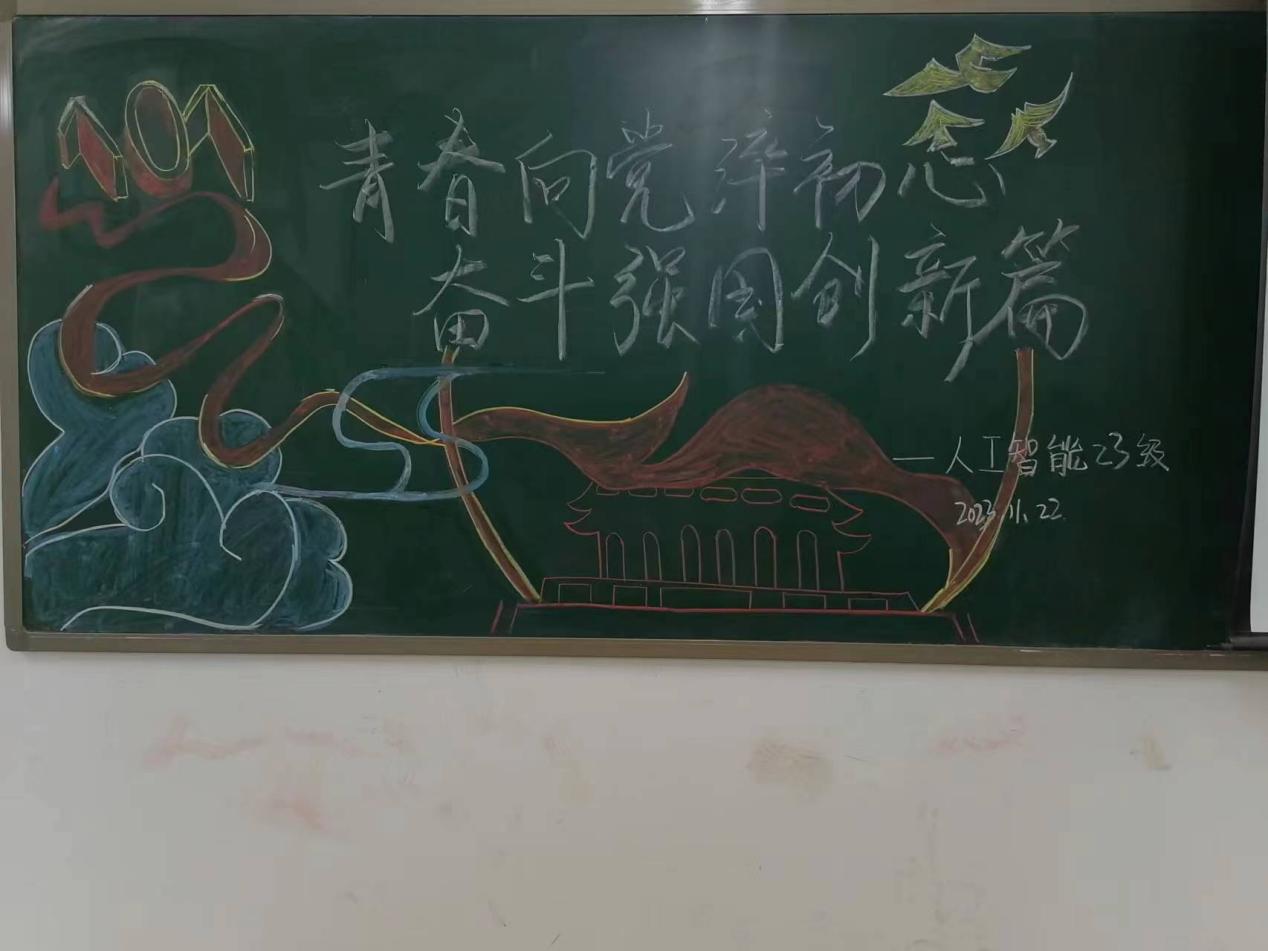 101
青春向党淬初心
奋斗强国创新篇
—人工智能23级
2023.11.22